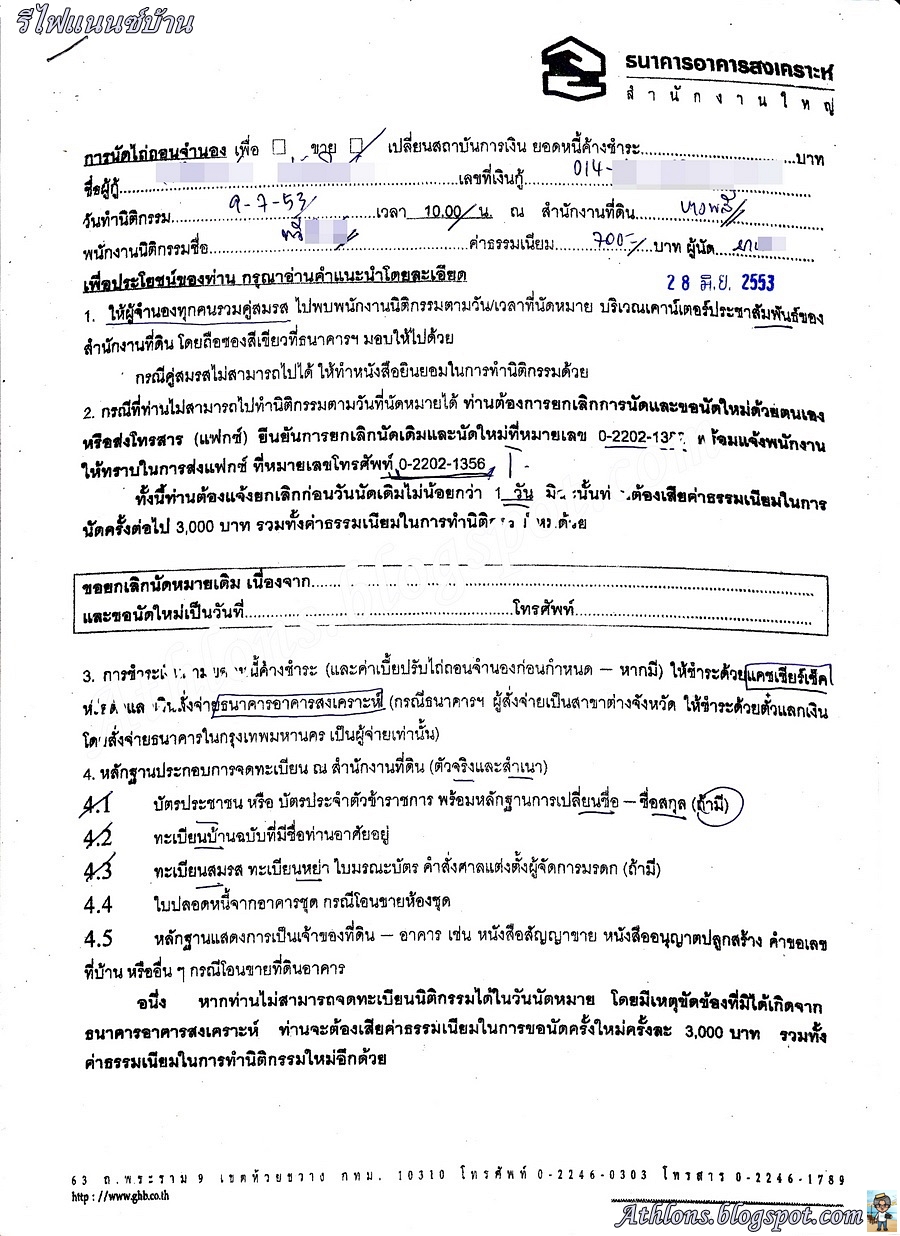 รีไฟแนนซ์บ้าน
ธนาคารอาคารสงเคราะห์
สำนักงานใหญ่
การนัดไถ่ถอนจำนอง เพื่อ □ ขาย □ เปลี่ยนสถาบันการเงิน ยอดหนี้ค้างชำระ..............................บาท
ชื่อผู้กู้..............................เลขที่เงินกู้ 014-
วันทำนิติกรรม 9-7-53 เวลา 10.00 น. ณ สำนักงานที่ดิน บางพลี
พนักงานนิติกรรมชื่อ ค่าธรรมเนียม 700- บาท ผู้นัด
เพื่อประโยชน์ของท่าน กรุณาอ่านคำแนะนำโดยละเอียด
28 มิ.ย. 2553
1. ให้ผู้จำนองทุกคนรวมคู่สมรส ไปพบพนักงานนิติกรรมตามวัน/เวลาที่นัดหมาย บริเวณเคาน์เตอร์ประชาสัมพันธ์ของ
สำนักงานที่ดิน โดยถือซองสีเขียวที่ธนาคารฯ มอบให้ไปด้วย
กรณีคู่สมรสไม่สามารถไปได้ ให้ทำหนังสือยินยอมในการทำนิติกรรมด้วย
2. กรณีที่ท่านไม่สามารถไปทำนิติกรรมตามวันที่นัดหมายได้ ท่านต้องการยกเลิกการนัดและขอนัดใหม่ด้วยตนเอง
หรือส่งโทรสาร (แฟกซ์) ยืนยันการยกเลิกนัดเดิมและนัดใหม่ที่หมายเลข พร้อมแจ้งพนักงาน
ให้ทราบในการส่งแฟกซ์ ที่หมายเลขโทรศัพท์ 0-2202-1356
ทั้งนี้ท่านต้องแจ้งยกเลิกก่อนวันนัดเดิมไม่น้อยกว่า 1 วัน ต้องเสียค่าธรรมเนียมในการ
นัดครั้งต่อไป 3,000 บาท รวมทั้งค่าธรรมเนียมในการทำ ด้วย
ขอยกเลิกนัดหมายเดิม เนื่องจาก..............................
และขอนัดใหม่เป็นวันที่..............................โทรศัพท์..............................
3. การชำระ ค้างชำระ (และค่าเบี้ยปรับไถ่ถอนจำนองก่อนกำหนด – หากมี) ให้ชำระด้วยแคชเชียร์เช็ค
สั่งจ่ายธนาคารอาคารสงเคราะห์ (กรณีธนาคารฯ ผู้สั่งจ่ายเป็นสาขาต่างจังหวัด ให้ชำระด้วยตั๋วแลกเงิน
โดยสั่งจ่ายธนาคารในกรุงเทพมหานคร เป็นผู้จ่ายเท่านั้น)
4. หลักฐานประกอบการจดทะเบียน ณ สำนักงานที่ดิน (ตัวจริงและสำเนา)
4.1 บัตรประชาชน หรือ บัตรประจำตัวข้าราชการ พร้อมหลักฐานการเปลี่ยนชื่อ – ชื่อสกุล (ถ้ามี)
4.2 ทะเบียนบ้านฉบับที่มีชื่อท่านอาศัยอยู่
4.3 ทะเบียนสมรส ทะเบียนหย่า ใบมรณะบัตร คำสั่งศาลแต่งตั้งผู้จัดการมรดก (ถ้ามี)
4.4 ใบปลอดหนี้จากอาคารชุด กรณีโอนขายห้องชุด
4.5 หลักฐานแสดงการเป็นเจ้าของที่ดิน – อาคาร เช่น หนังสือสัญญาขาย หนังสืออนุญาตปลูกสร้าง คำขอเลข
ที่บ้าน หรืออื่น ๆ กรณีโอนขายที่ดินอาคาร
อนึ่ง หากท่านไม่สามารถจดทะเบียนนิติกรรมได้ในวันนัดหมาย โดยมีเหตุขัดข้องที่มิได้เกิดจาก
ธนาคารอาคารสงเคราะห์ ท่านจะต้องเสียค่าธรรมเนียมในการขอนัดครั้งใหม่ครั้งละ 3,000 บาท รวมทั้ง
ค่าธรรมเนียมในการทำนิติกรรมใหม่อีกด้วย
63 ถ.พระราม 9 เขตห้วยขวาง กทม. 10310 โทรศัพท์ 0-2246-0303 โทรสาร 0-2246-1789
http : //www.ghb.co.th
Athlons.blogspot.com